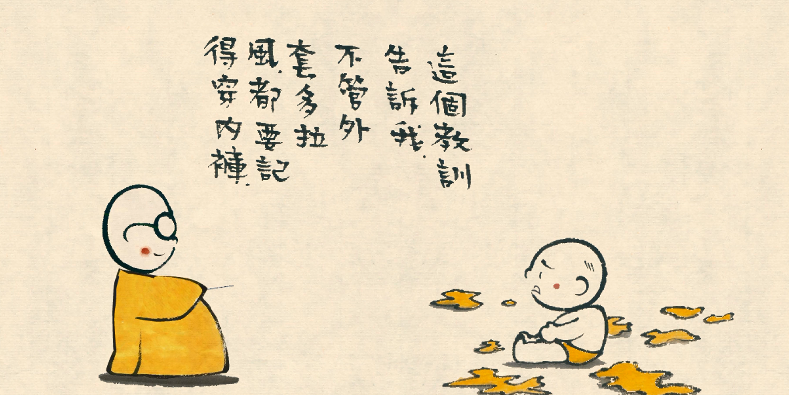 這個教訓
告訴我
不管外
套多拉
風都要記
得穿內褲